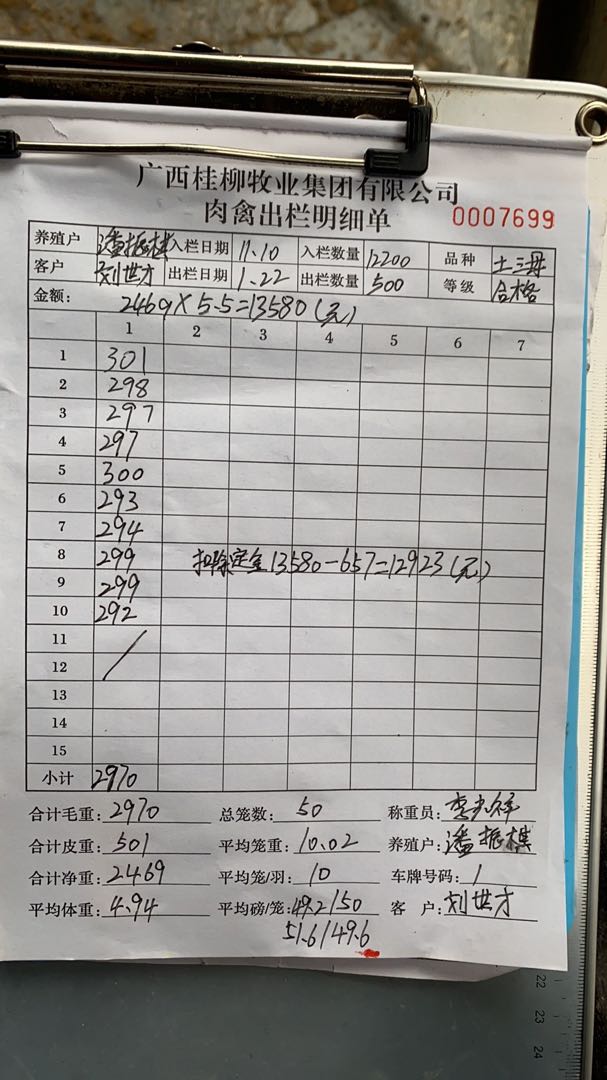 广西桂柳牧业集团有限公司
肉禽出栏明细单 0007699
养殖户 潘振棋 入栏日期 11.10 入栏数量 12200 品种 土三母
客户 刘世才 出栏日期 1.22 出栏数量 500 等级 合格
金额: 2469×5.5=13580(元)
1 2 3 4 5 6 7
1 301
2 298
3 297
4 297
5 300
6 293
7 294
8 299 扣除定金13580-657=12923(元)
9 299
10 292
11
12
13
14
15
小计 2970
合计毛重: 2970 总笼数: 50 称重员:
合计皮重: 501 平均笼重: 10.02 养殖户: 潘振棋
合计净重: 2469 平均笼/羽: 10 车牌号码: 1
平均体重: 4.94 平均磅/笼: 49.2/50 客户: 刘世才
51.6/49.6
22
23
24